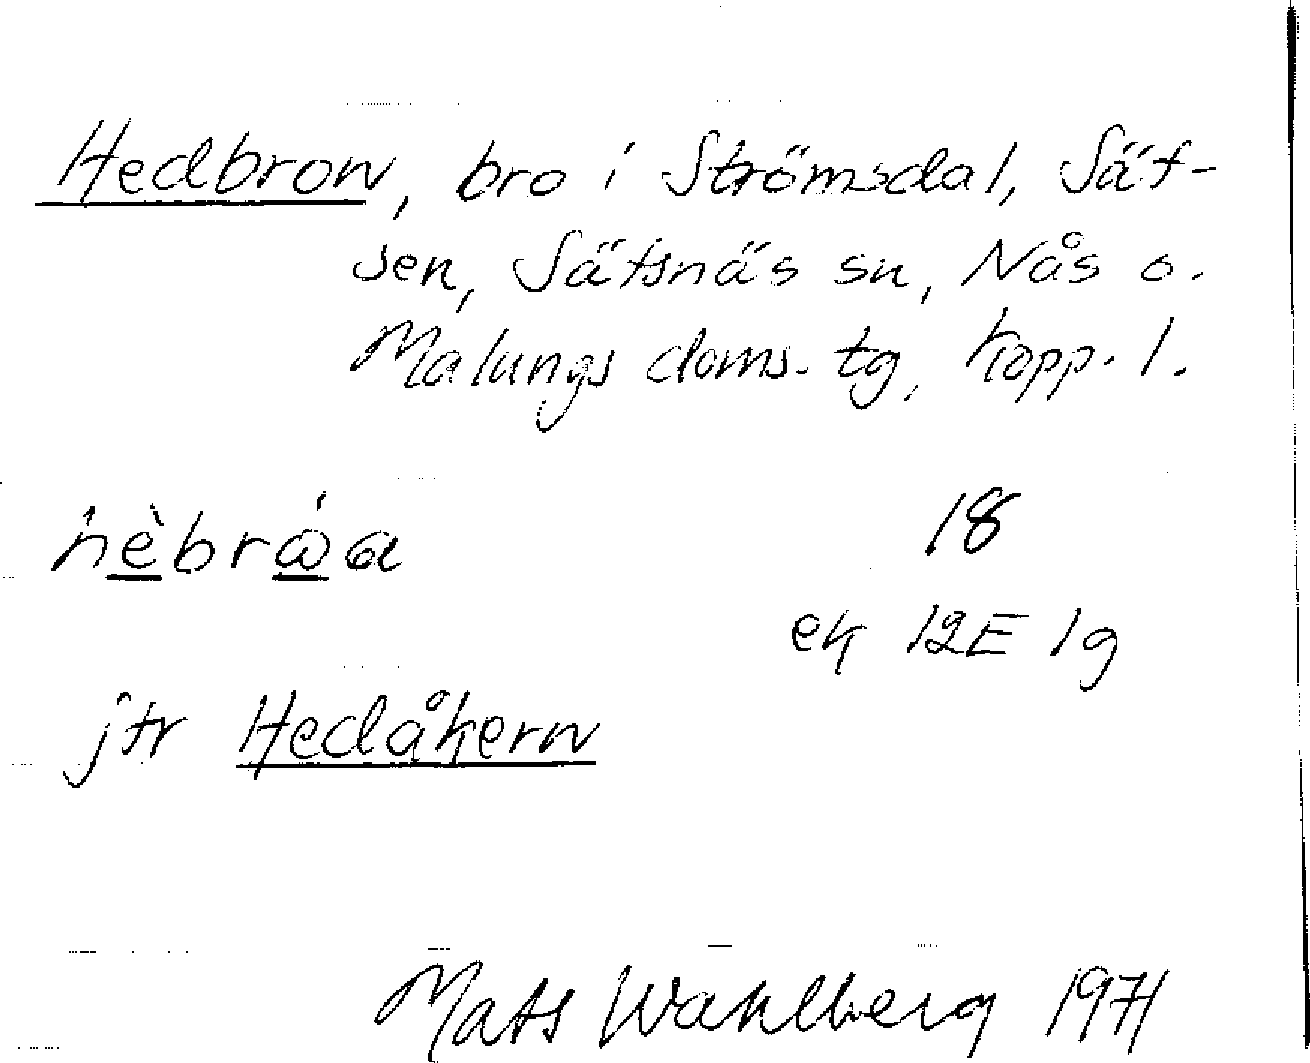 Hedbron, bro i Strömsdal, Sät-
sen, Sätsnäs sn, Nås o.
Malungs doms. tg, Kopp. l.
hèbrǻa 18
ek 12E 1g
jfr Hedåkern
Mats Wahlberg 1971